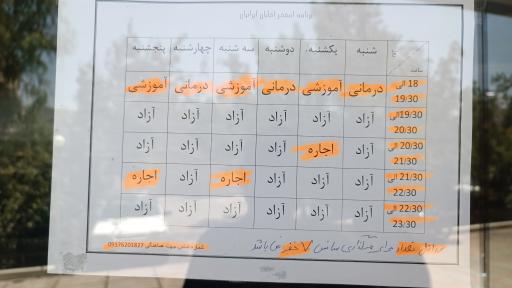 برنامه استخر اطلس ایرانیان
شنبه یکشنبه دوشنبه سه شنبه چهارشنبه پنجشنبه
ساعت
18 الی 19/30 درمانی آموزشی درمانی آموزشی درمانی آموزشی
19/30 الی 20/30 آزاد آزاد آزاد آزاد آزاد آزاد
20/30 الی 21/30 آزاد اجاره آزاد آزاد آزاد آزاد
21/30 الی 22/30 آزاد آزاد آزاد اجاره آزاد اجاره
22/30 الی 23/30 آزاد آزاد آزاد آزاد آزاد آزاد
حداقل تعداد برای برگزاری سانس 7 نفر می باشد
شماره تماس جهت هماهنگی 09376201827